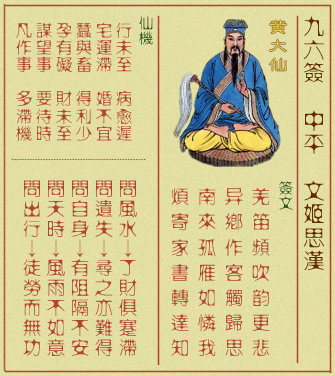 九六簽 中平 文姬思漢
黄大仙
簽文
羌笛頻吹韵更悲
异鄉作客觸歸思
南來孤雁如憐我
煩寄家書轉達知
仙機
行未至 病愈遲
宅運滯 婚不宜
蠶與畜 得利少
孕有礙 財未至
謀望事 要待時
凡作事 多滯機
問風水→了財俱蹇滯
問遺失→尋之亦難得
問自身→有阻隔不安
問天時→風雨不如意
問出行→徒勞而無功